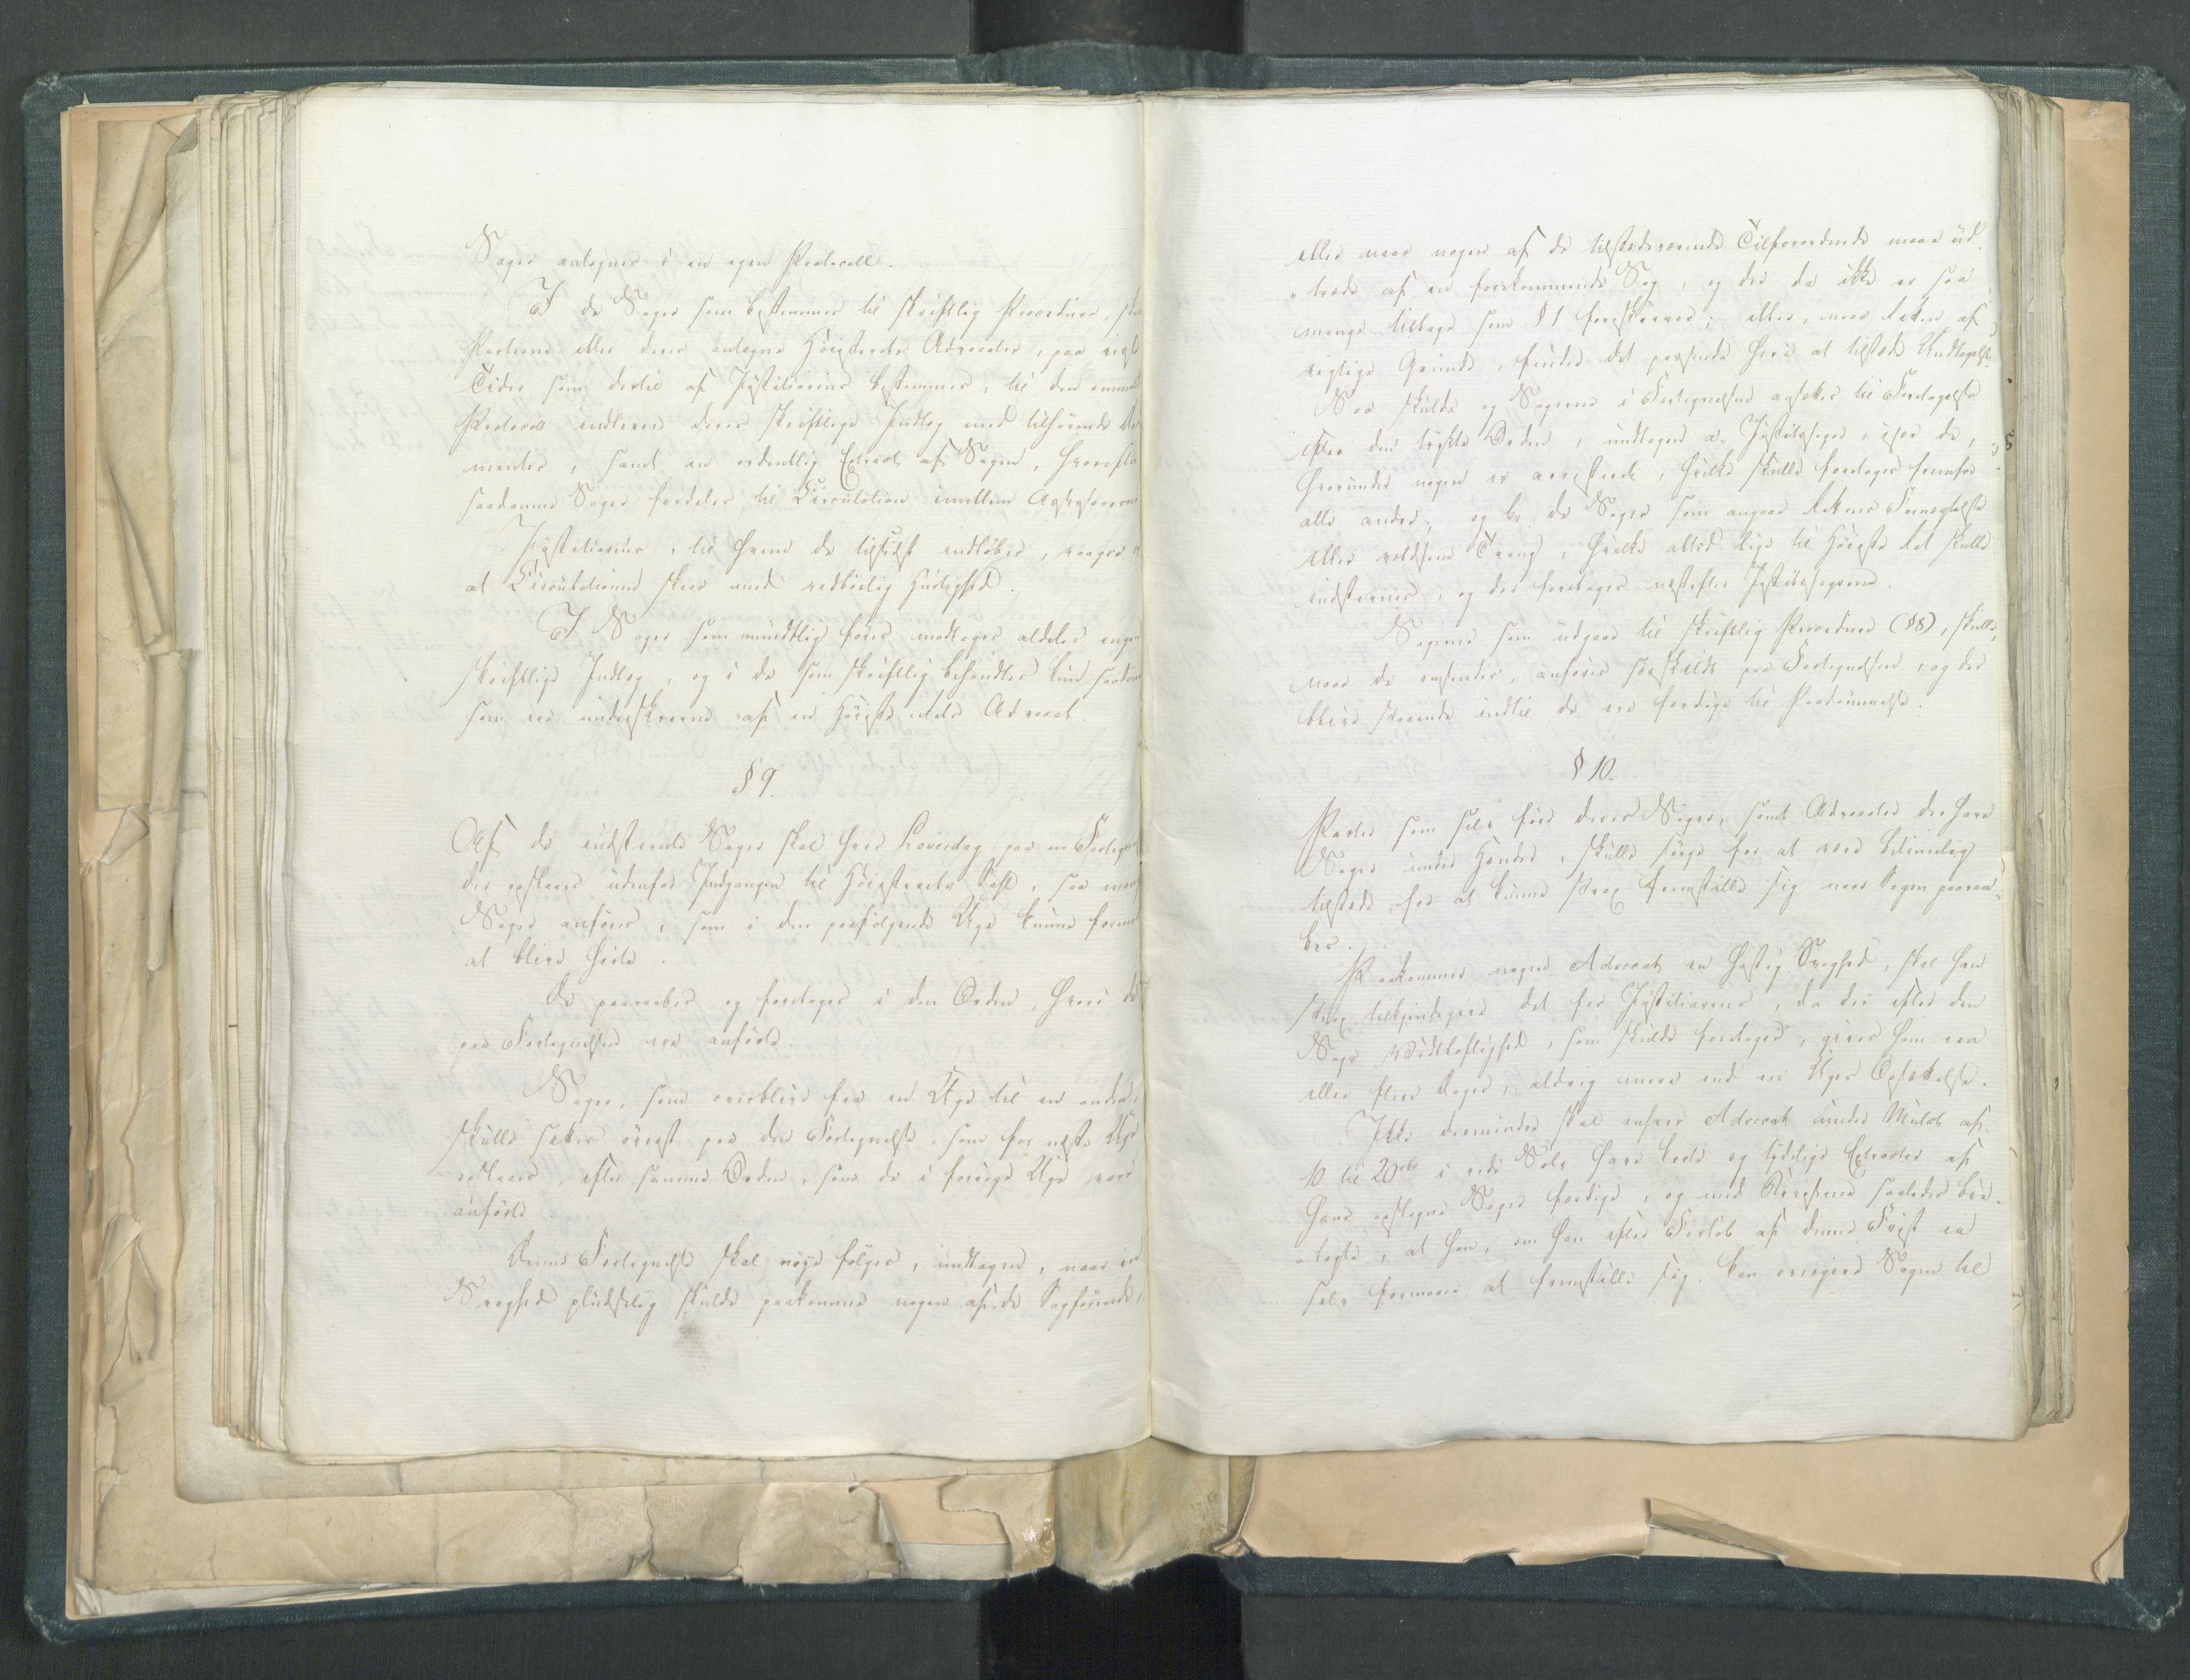 Sager antegnes i en egen Protocoll.
I de Sager som bestemmes til skriftlig Procedure,
Parterne eller deres antagne Höiesterets Advocater, paa
Tider som dertil af Justitiarius bestemmes, til den
Protocoll indlevere deres skriftlige Indlæg med tilhörende
menter, samt en ordentlig Extract af Sagen, hvorefter
saadanne Sager fordeles til Circulation imellem Assessorerne
Justitiarius, til hvem de tilsidst indlöber, vaager
at Circulationen skeer med tilbörlig Hurtighed.
I Sager som mundtlig föres modtages aldeles ingen
skriftlige Indlæg, og i de som skriftlig behandles kun saadanne
som ere underskrevne af en Höieste Rets Advocat.
§ 9.
Af de indstevnte Sager skal hver Löverdag paa en
der opslaaes udenfor Indgangen til Höiesterets Sahl, saa mange
Sager anföres, som i den paafölgende Uge kunne
at blive hörte.
De paaraabes og foretages i den Orden, hvori de
paa Fortegnelsen ere anförte.
Sager, som overblive fra en Uge til en anden,
skulle sættes överst paa den Fortegnelse, som for næste Uge
opslaaes, efter samme Orden, som de i forrige Uge vare
anförte.
Denne Fortegnelse skal nöye fölges, undtagen, naar en
Svaghed pludselig skulde paakomme nogen af de Sagförende,
eller naar nogen af de tilstedeværende Tilforordnede maae ud-
„træde af en forekommende Sag, og der da ikke er saa
mange tilbage som § 1 foreskriver; eller, naar Retten af
vigtige Grunde, finder det passende heri at tilstæde Undtagelse.
Saa skulde og Sagerne i Fortegnelsen ansættes til Foretagelse
efter den trykte Orden, undtagen a, Justitssager, især de,
hvorunder nogen er arresteret, hvilke skulle foretages fremfor
alle andre; og b, de Sager som angaae Rettens Fornegtelse
eller voldsom Trang, hvilke altid lige til Höieste Ret skulle
indstevnes, og der foretages næstefter Justitssagerne.
Sagerne som udgaae til skriftlig Procedure (§8), skulle,
naar de ansendes, anföres særskildt paa Fortegnelsen, og der
blive staaende indtil de ere færdige til Paadömmelse.
§ 10.
Parter som selv före deres Sager, samt Advocater der have
Sager under Hænder, skulle sörge for at være betimelig
tilstede, for at kunne strax fremstille sig naar Sagen paaraa-
bes.
Paakommer nogen Advocat en hastig Svaghed, skal han
strax tilkjendegive det for Justitiarius, da der efter den
Sags Vidtloftighed, som skulde foretages, gives ham een
eller flere Dages, aldrig meere end en Uges Opsættelse.
Ikke desmindre skal enhver Advocat under Mulct af
10 til 20 rbd i rede Sölv have korte og tydelige Extracter af
hans opslagne Sager færdige, og med Acterne saaledes bi-
lagte, at han, om han efter Forlöb af denne Frist ei
selv formaaer at fremstille sig, kan overgive Sagen til